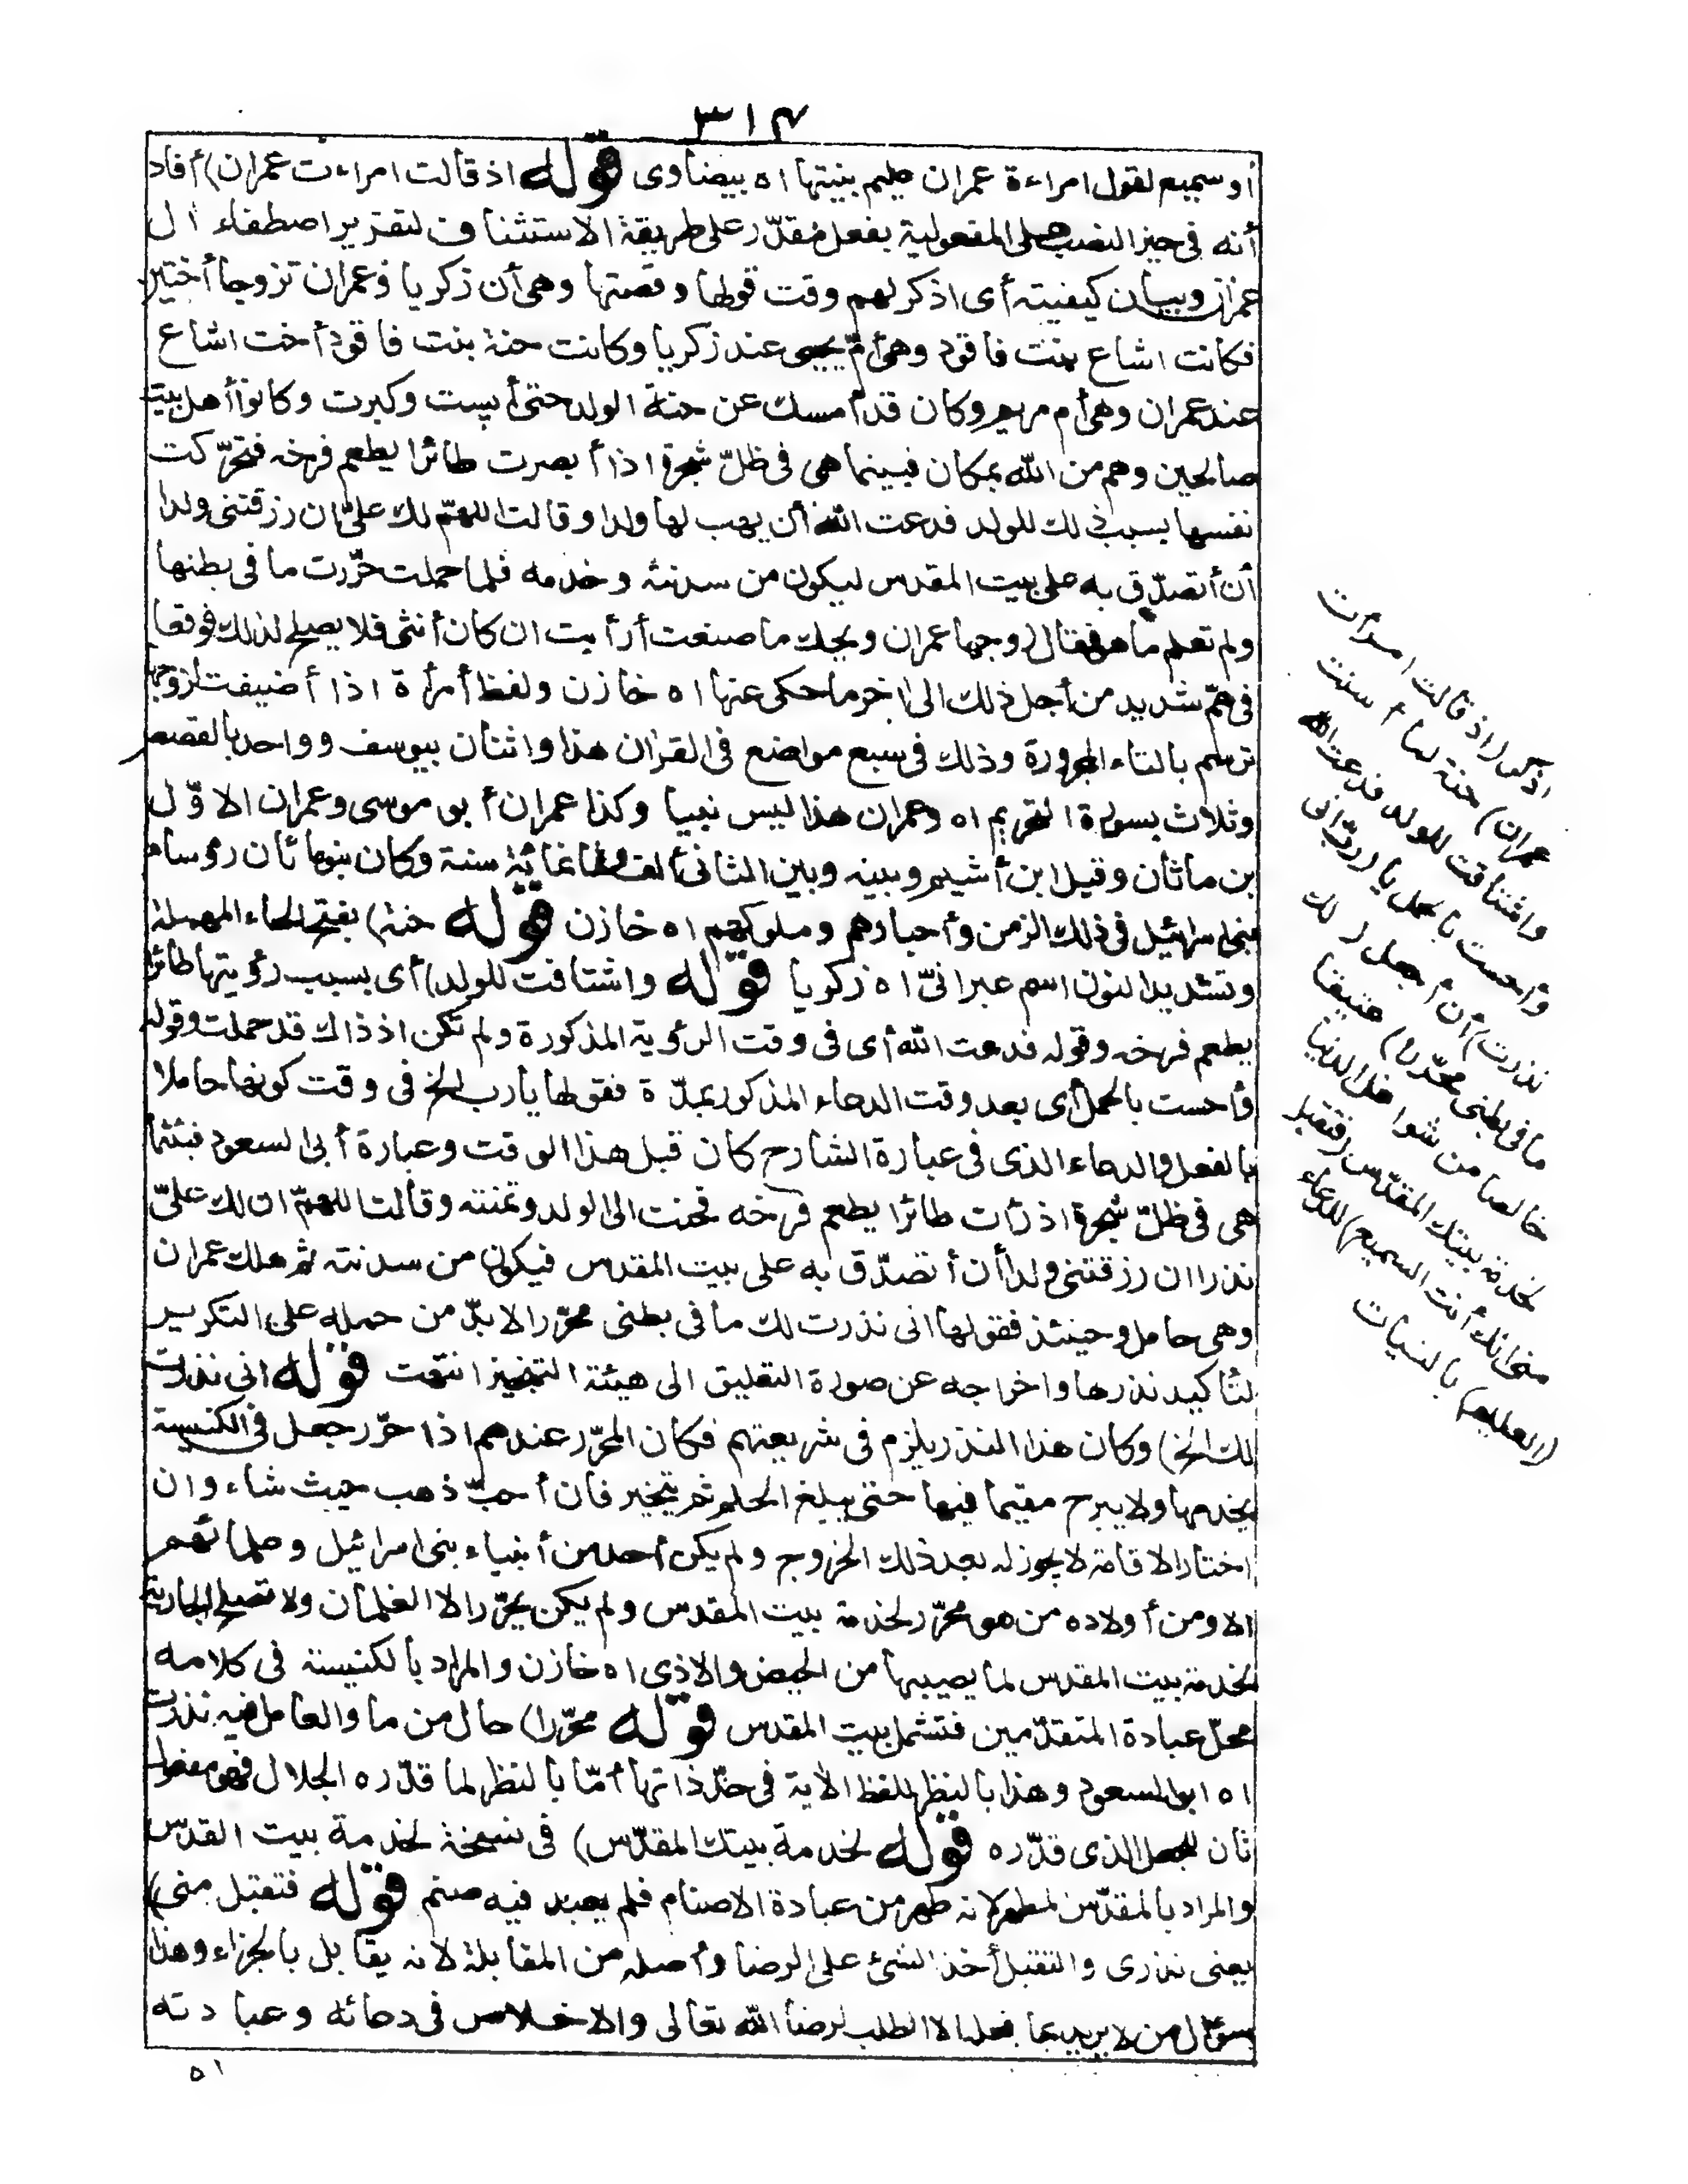 ٣١٧
أو سميع لقول امراءة عمران عليم بنيتها اه بيضاوى قوله اذ قالت امراءت عمران) أفاد
أنه فى حيز النصب على المفعولية بفعل مقدّر على طريقة الاستئناف لتقرير اصطفاء ال
عمران وبيان كيفيته أى اذكر لهم وقت قولها وقصتها وهى أن زكريا وعمران تزوجا أختين
فكانت اشاع بنت فاقود وهى أمّ يحيى عند زكريا وكانت حنة بنت فاقود أخت اشاع
عند عمران وهى أم مريم وكان قد أمسك عن حنة الولد حتى أيست وكبرت وكانوا أهل بيت
صالحين وهم من الله بمكان فبينما هى فى ظلّ شجرة اذ أبصرت طائرا يطعم فرخه فتحرّكت
نفسها بسبب ذلك للولد فدعت الله أن يهب لها ولدا وقالت اللهمّ لك علىّ ان رزقتنى ولدا
أن أتصدّق به على بيت المقدس ليكون من سدنته وخدمه فلما حملت حرّرت ما فى بطنها
ولم تعلم ما هو فقال زوجها عمران ويحك ما صنعت أرأيت ان كان أنثى فلا يصلح لذلك فوقعا
فى همّ شديد من أجل ذلك الى اخر ما حكى عنها اه خازن ولفظ أمرأة اذا أضيفت لزوجها
ترسم بالتاء المجرورة وذلك فى سبع مواضع فى القران هذا واثنان بيوسف وواحد بالقصص
وثلاث بسورة التحريم اه وعمران هذا ليس نبيا وكذا عمران أبو موسى وعمران الاوّل
بن ماثان وقيل ابن أشيم وبينه وبين الثانى ألف وثمانمائة سنة وكان بنوماثان رؤساء
بنى اسرائيل فى ذلك الزمن وأحبارهم وملوكهم اه خازن قوله حنة) بفتح الحاء المهملة
وتشديد النون اسم عبرانىّ اه زكريا قوله واشتاقت للولد) أى بسبب رؤيتها طائرا
يطعم فرخه وقوله فدعت الله أى فى وقت الرؤية المذكورة ولم تكن اذ ذاك قد حملت وقوله
وأحست بالحمل أى بعد وقت الدعاء المذكور بمدّة فقولها يارب الخ فى وقت كونها حاملا
بالفعل والدعاء الذى فى عبارة الشارح كان قبل هذا الوقت وعبارة أبى السعود فبينما
هى فى ظلّ شجرة اذ رأت طائرا يطعم فرخه فحنت الى الولد وتمنته وقالت اللهمّ ان لك علىّ
نذرا ان رزقتنى ولدا أن أتصدّق به على بيت المقدس فيكون من سدنته ثم هلك عمران
وهى حامل وحينئذ فقولها انى نذرت لك ما فى بطنى محرّرا لا بدّ من حمله على التكرير
لتأكيد نذرها واخراجه عن صورة التعليق الى هيئة التنجيز انتهت قوله انى نذرت
لك الخ) وكان هذا النذر يلزم فى شريعتهم فكان المحرّر عندهم اذا حرّر جعل فى الكنيسة
يخدمها ولا يبرح مقيما فيها حتى يبلغ الحلم ثم يتخير فان أحبّ ذهب حيث شاء وان
اختار الاقامة لا يجوز له بعد ذلك الخروج ولم يكن أحد من أنبياء بنى اسرائيل وعلمائهم
الا ومن أولاده من هو محرّر لخدمة بيت المقدس ولم يكن يحرّر الا الغلمان ولا تصلح الجارية
لخدمة بيت المقدس لما يصيبها من الحيض والاذى اه خازن والمراد بالكنيسة فى كلامه
محلّ عبادة المتقدّمين فتشمل بيت المقدس قوله محرّرا) حال من ما والعامل فيه نذرت
اه ابو السعود وهذا بالنظر للفظ الآية فى حدّ ذاتها أمّا بالنظر لما قدّره الجلال فهو مفعول
ثان للجعل الذى قدّره قوله لخدمة بيتك المقدّس) فى نسخة لخدمة بيت القدّس
والمراد بالمقدّس المطهر لانه طهر من عبادة الاصنام فلم يعبد فيه صنم قوله فتقبل منى)
يعنى نذرى والتقبل أخذ الشئ على الرضا وأصله من المقابلة لانه يقابل بالجزاء وهذا
سؤال من لا يريد بما فعل الا الطلب لرضا الله تعالى والاخلاص فى دعائه وعبادته
اه
اذكر (اذ قالت امرأت
عمران) حنة لما أسنت
واشتاقت للولد فدعت الله
وأحست بالحمل يا (رب انى
نذرت) أن أجعل (لك
ما فى بطنى محرّرا) عتيقا
خالصا من شواغل الدنيا
لخدمة بيتك المقدّس (فتقبل
منى انك أنت السميع) للدعاء
(العليم) بالنيات